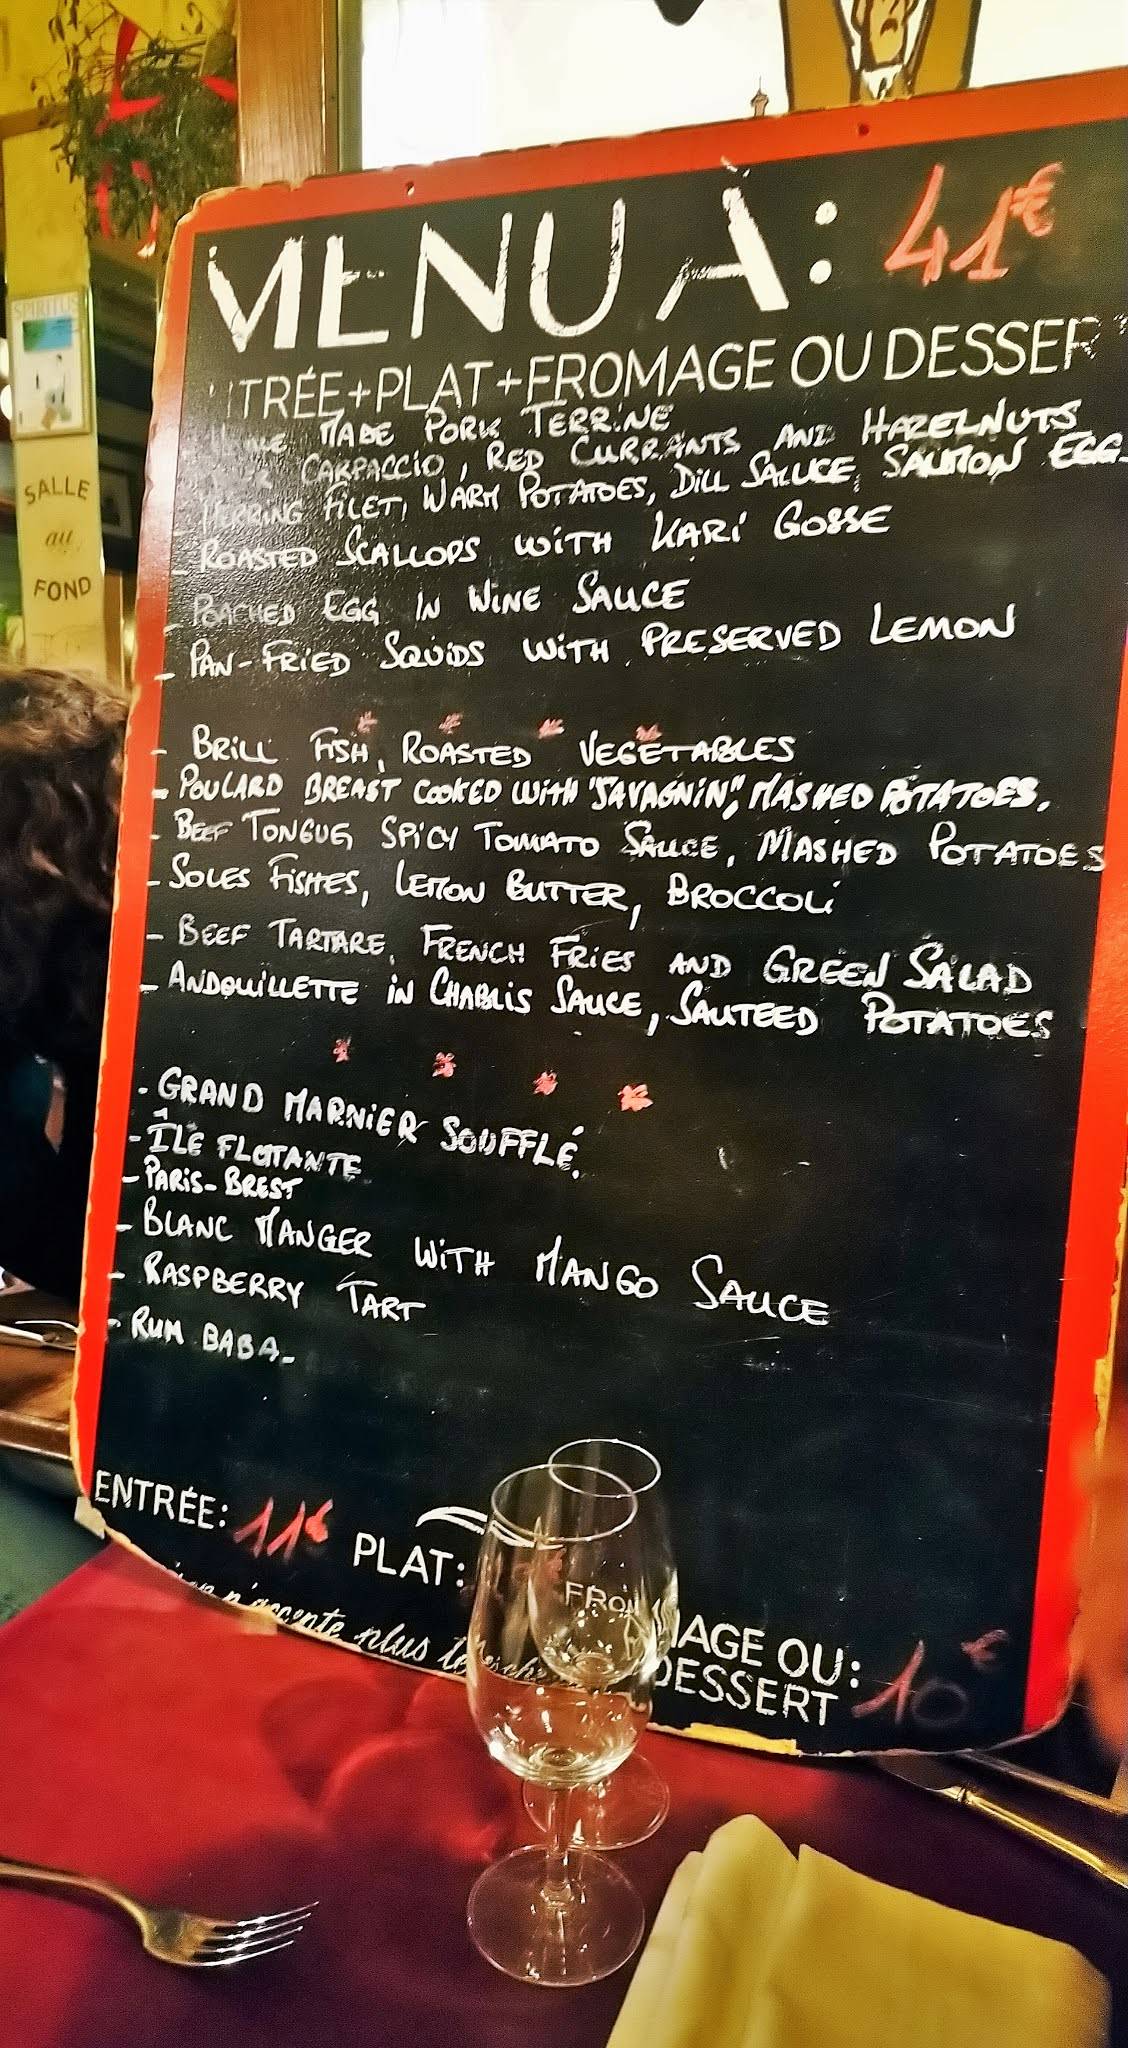 MENU À: 41€
ENTRÉE+PLAT+FROMAGE OU DESSERT
MADE PORK TERRINE
CARPACCIO, RED CURRANTS AND HAZELNUTS
HERRING FILET, WARM POTATOES, DILL SAUCE, SALMON EGG
- ROASTED SCALLOPS WITH KARI GOSSE
- POACHED EGG IN WINE SAUCE
- PAN-FRIED SQUIDS WITH PRESERVED LEMON
- BRILL FISH, ROASTED VEGETABLES
- POULARD BREAST COOKED WITH "SAVAGNIN", MASHED POTATOES.
- BEEF TONGUE, SPICY TOMATO SAUCE, MASHED POTATOES
- SOLES FISHES, LEMON BUTTER, BROCCOLI
- BEEF TARTARE, FRENCH FRIES AND GREEN SALAD
- ANDOUILLETTE IN CHABLIS SAUCE, SAUTEED POTATOES
- GRAND MARNIER SOUFFLÉ.
- ÎLE FLOTTANTE
- PARIS-BREST
- BLANC MANGER WITH MANGO SAUCE
- RASPBERRY TART
- RUM BABA-
ENTRÉE: 11€ PLAT: FROMAGE OU: DESSERT 10€
n'accepte plus les
SPIRITUS
SALLE
au
FOND